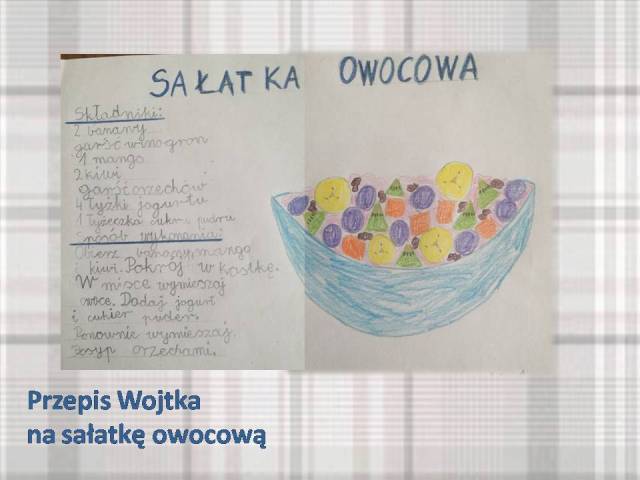 SAŁATKA OWOCOWA
Składniki:
2 banany
garść winogron
1 mango
2 kiwi
garść orzechów
4 łyżki jogurtu
1 łyżeczka cukru pudru
Sposób wykonania:
Obierz banany, mango
i kiwi. Pokrój w kostkę.
W misce wymieszaj
owoce. Dodaj jogurt
i cukier puder.
Ponownie wymieszaj.
Posyp orzechami.
Przepis Wojtka
na sałatkę owocową